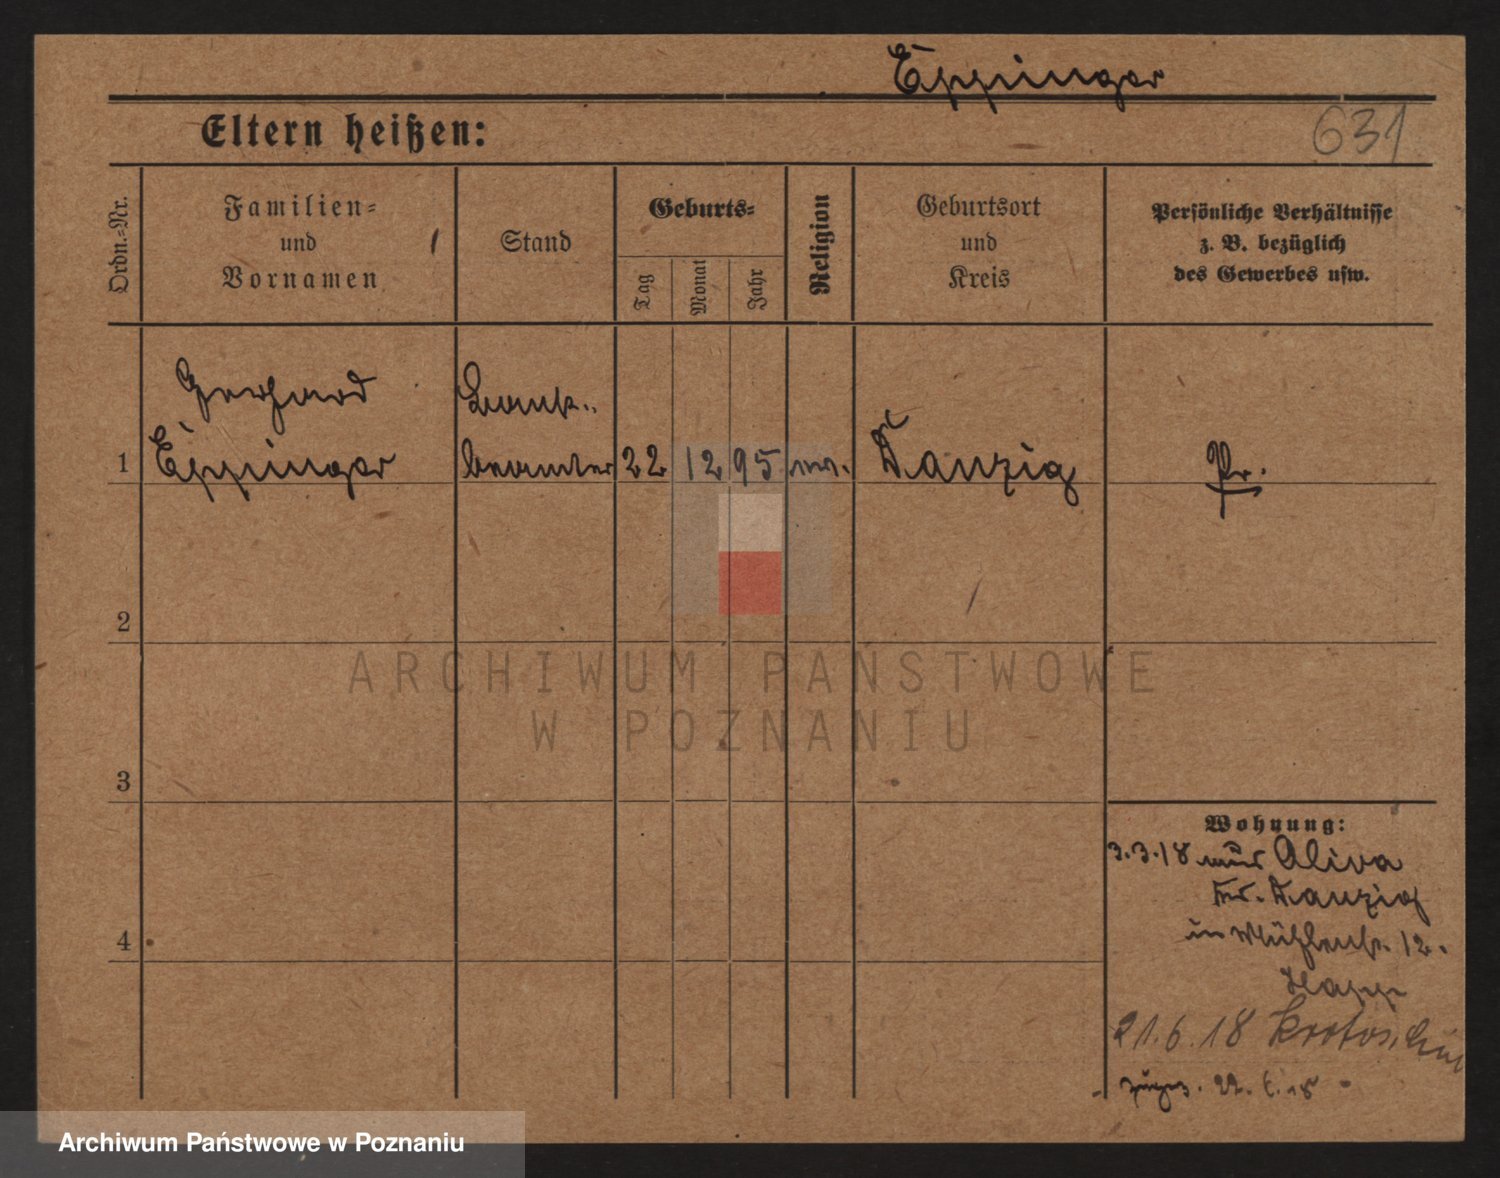 Eppinger
Eltern heißen:
631
Ordn.-Nr.
Familien-
und
Vornamen
Stand
Geburts-
Tag
Monat
Jahr
Religion
Geburtsort
und
Kreis
Persönliche Verhältnisse
z. B. bezüglich
des Gewerbes usw.
Gerhard
Eppinger
Bank-
beamter
1
22
12
95
ev.
Danzig
Pr.
2
ARCHIWUM PAŃSTWOWE
W POZNANIU
3
Wohnung:
3.3.18 aus Oliva
Kr. Danzig
in Mühlenstr. 12.
4
21.6.18 Krotoschin
22. 6. 18
Archiwum Państwowe w Poznaniu